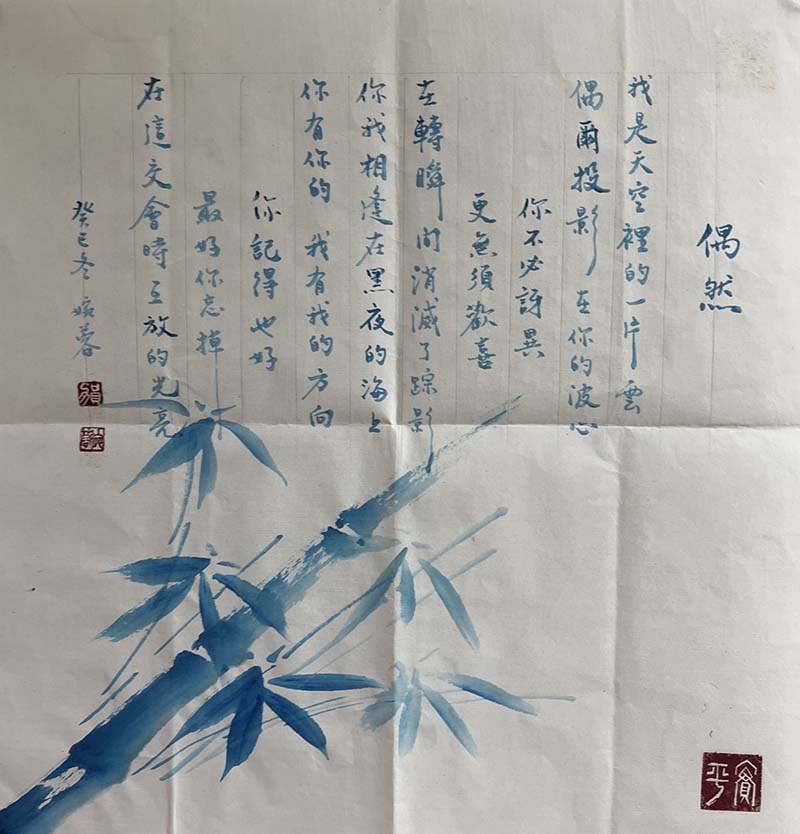 偶然
我是天空裡的一片雲
偶爾投影 在你的波心
你不必訝異
更無須歡喜
在轉瞬間消滅了踪影
你我相逢在黑夜的海上
你有你的 我有我的方向
你記得也好
最好你忘掉
在這交會時互放的光亮
癸巳冬